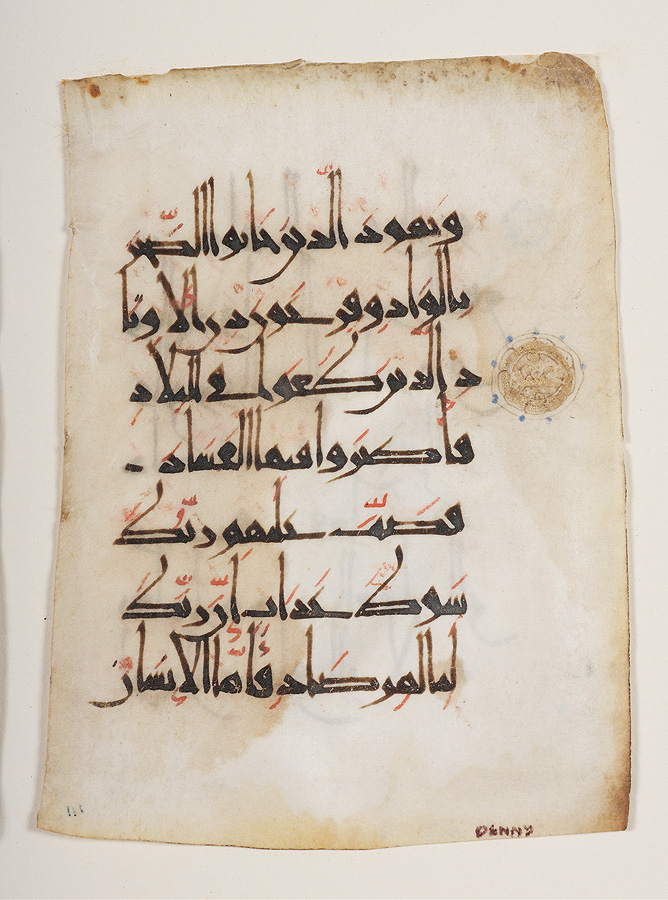 وثمود الذين جابوا الصّخر
بالواد وفرعون ذي الاوتا
د الذين طغوا في البلاد
فاكثروا فيها الفساد
فصبّ عليهم ربّك
سوط عذاب انّ ربّك
لبالمرصاد فأمّا الانسان
DENNY